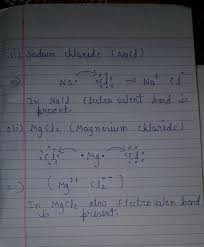 ii) Sodium chloride (NaCl)
=> Na• Cl → Na⁺ Cl⁻
In NaCl electrovalent bond is
present.
(ii) MgCl₂ (Magnesium chloride)
Cl •Mg• Cl
=> (Mg²⁺ Cl₂⁻⁻)
In MgCl₂ also Electrovalen bond
is present.